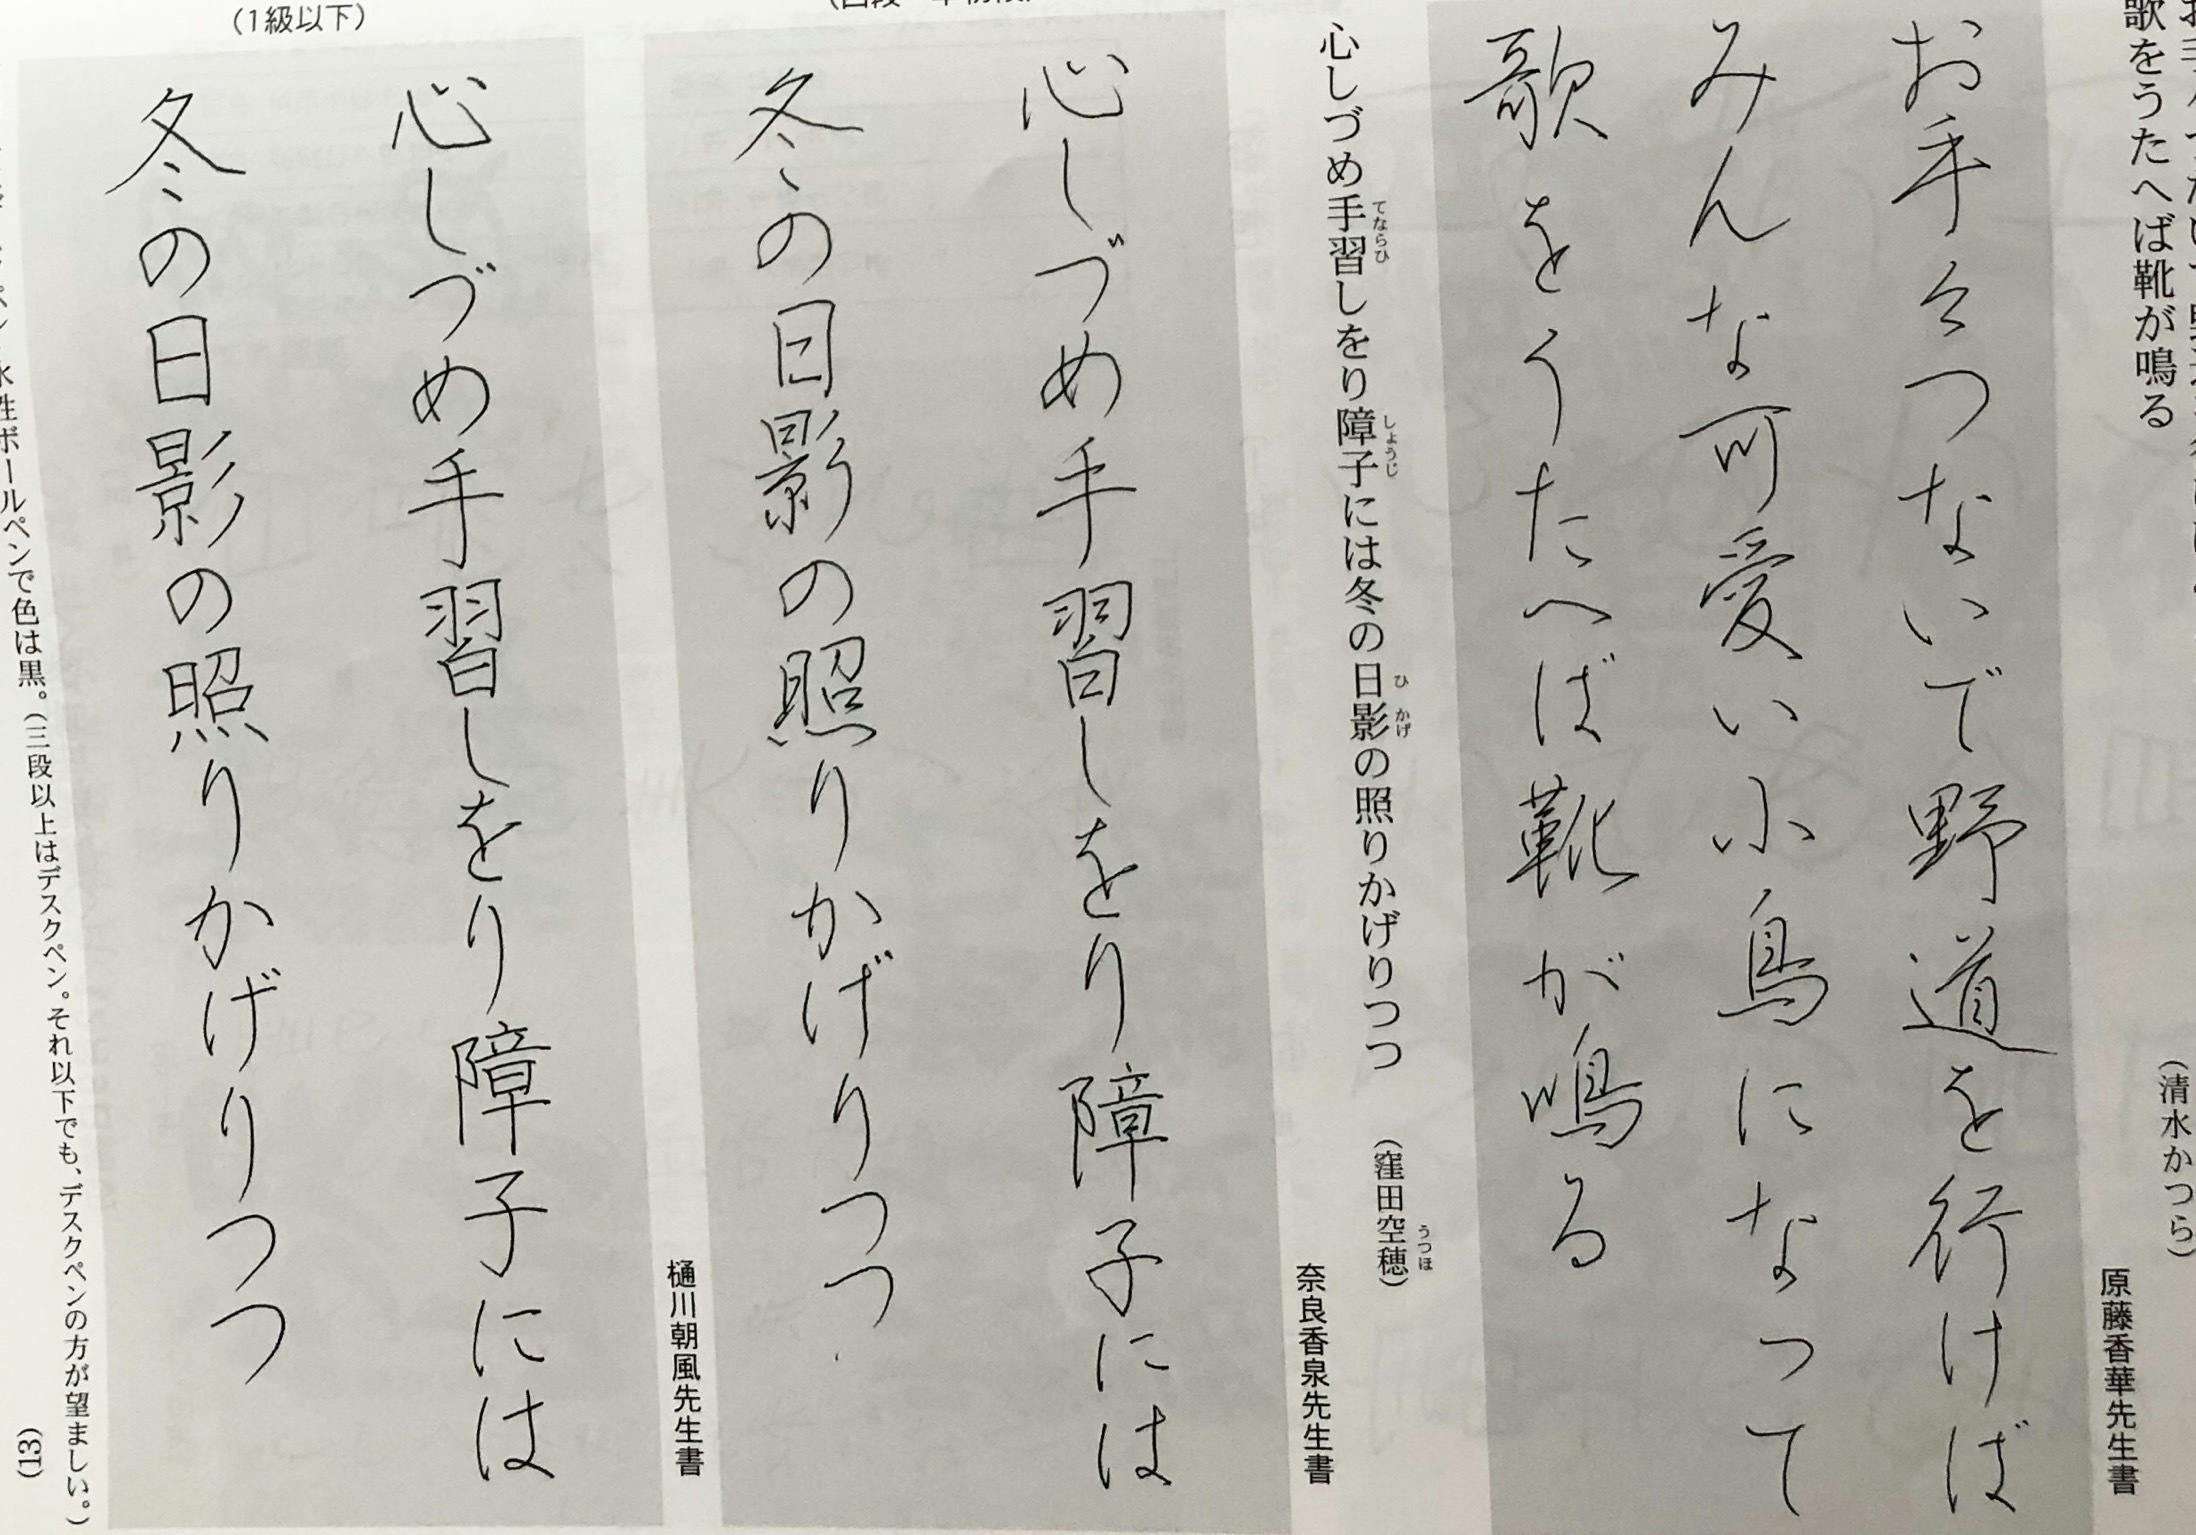 歌をうたへば靴が鳴る
(清水かつら)
原藤香華先生書
お手々つないで野道を行けば
みんな可愛い小鳥になって
歌をうたへば靴が鳴る
心しづめ手習しをり障子には冬の日影の照りかげりつつ
てならひ
しょうじ
ひかげ
(窪田空穂)
うつほ
奈良香泉先生書
心しづめ手習しをり障子には
冬の日影の照りかげりつつ
樋川朝風先生書
(1級以下)
心しづめ手習しをり障子には
冬の日影の照りかげりつつ
水性ボールペンで色は黒。(三段以上はデスクペン。それ以下でも、デスクペンの方が望ましい。)
(13)